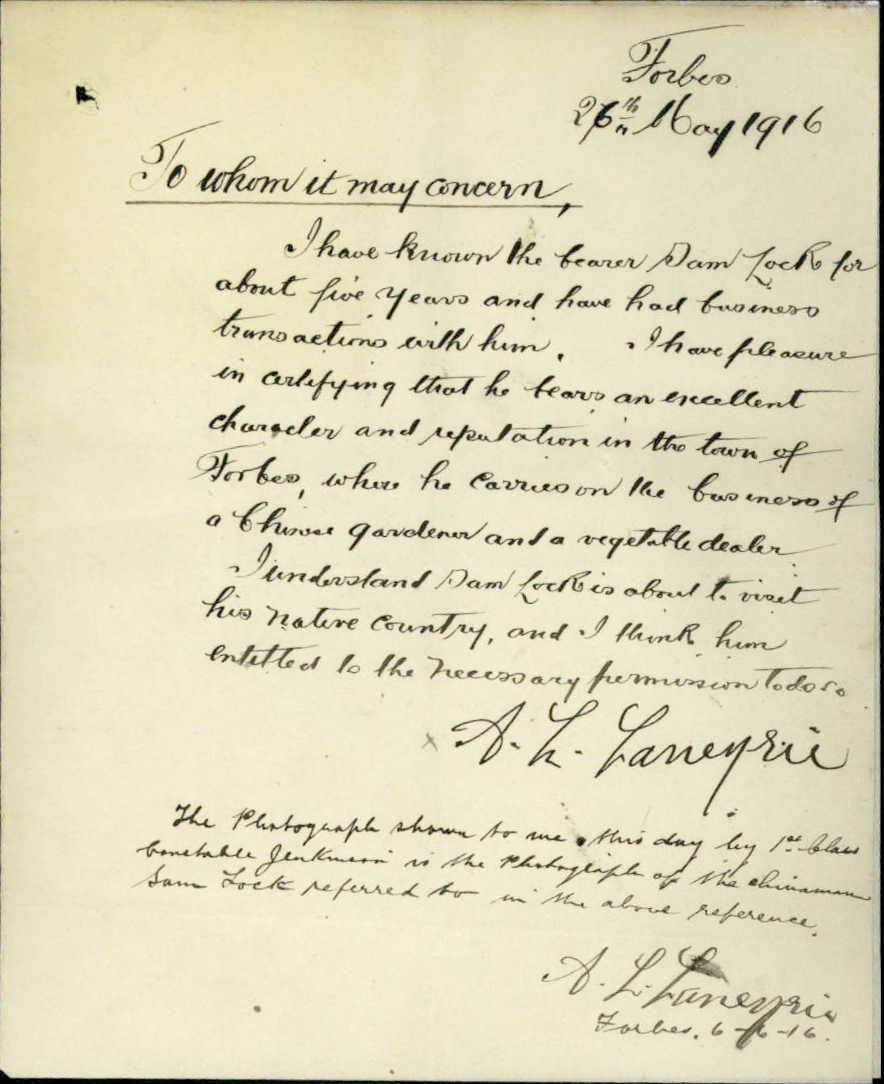 Forbes
26th May 1916
To whom it may concern,
I have known the bearer Sam Lock for
about five years and have had business
transactions with him. I have pleasure
in certifying that he bears an excellent
character and reputation in the town of
Forbes, where he carries on the business of
a Chinese gardener and a vegetable dealer
I understand Sam Lock is about to visit
his native country, and I think him
entitled to the necessary permission to do so
A. L. Laneyrie
The Photograph shown to me this day by 1st Class
Constable Jenkinson is the Photograph of the chinaman
Sam Lock referred to in the above reference.
A. L. Laneyrie
Forbes. 6-6-16.